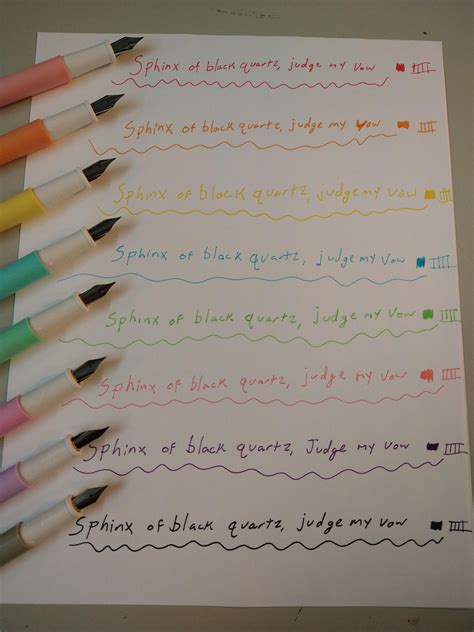 Sphinx of black quartz, judge my vow
Sphinx of black quartz, judge my vow
Sphinx of black quartz, judge my vow
Sphinx of black quartz, judge my vow
Sphinx of black quartz, judge my vow
Sphinx of black quartz, judge my vow
Sphinx of black quartz, Judge my vow
Sphinx of black quartz, judge my vow